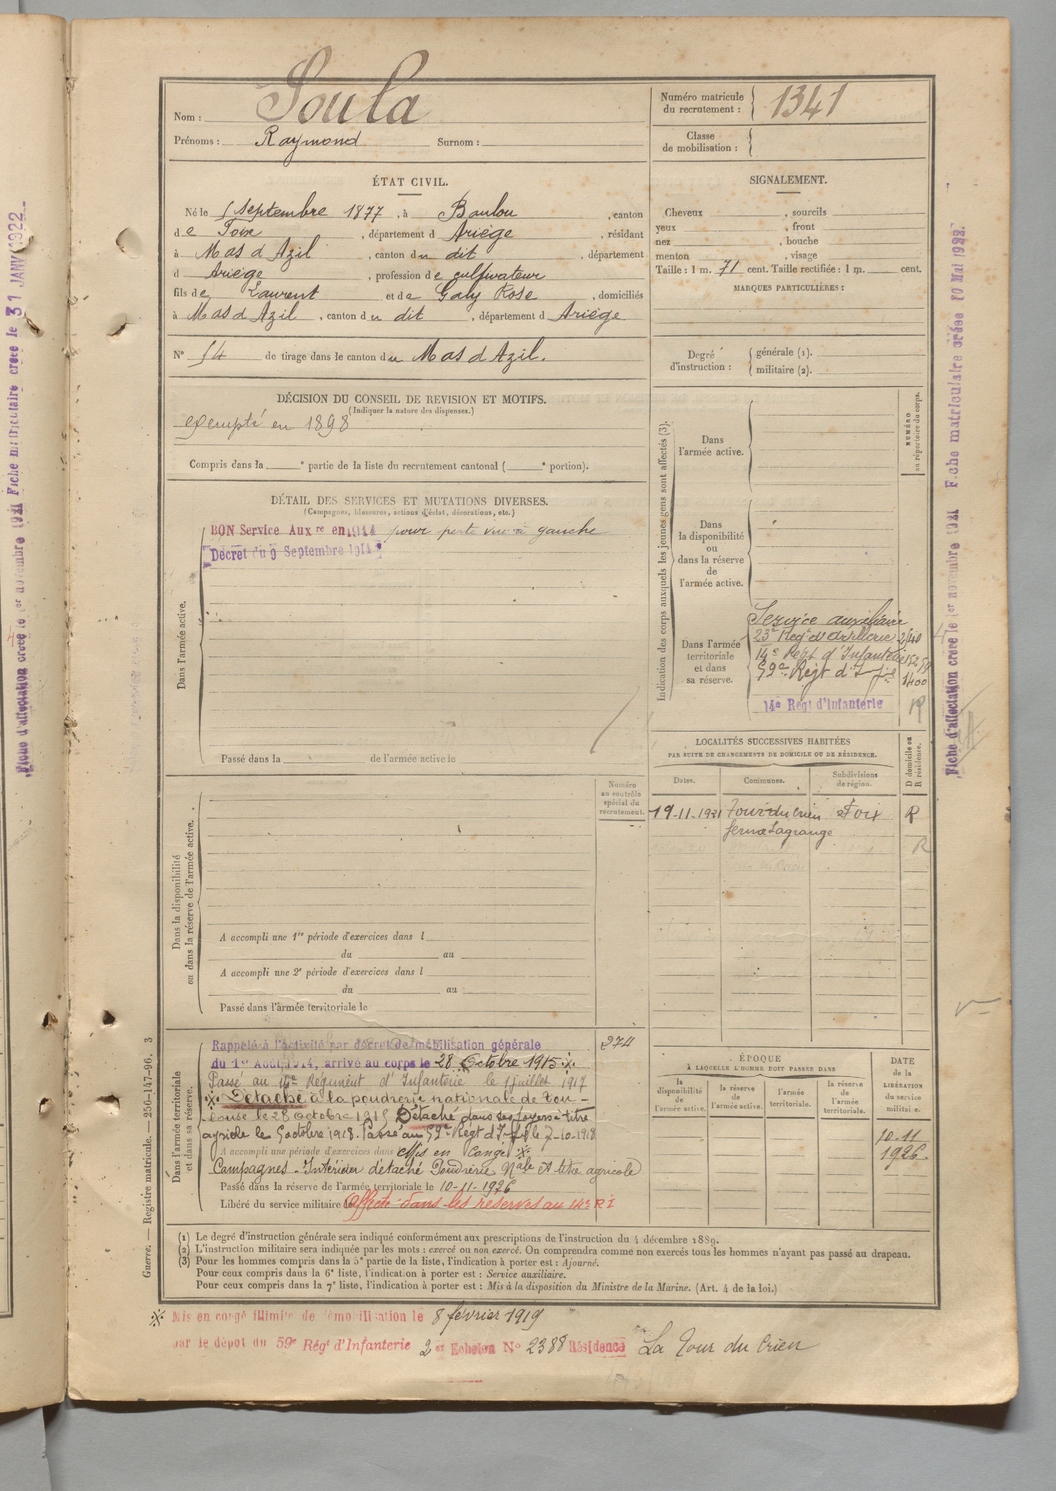 Nom : Soula
Prénoms : Raymond Surnom :
Numéro matricule du recrutement : 1341
Classe de mobilisation :
ÉTAT CIVIL.
Né le 5 septembre 1877, à Baulou, canton
de Foix, département d Ariège, résidant
à Mas d Azil, canton du dit, département
d Ariège, profession de cultivateur
fils de Laurent et de Galy Rose, domiciliés
à Mas d Azil, canton du dit, département d Ariège
N° 54 de tirage dans le canton du Mas d Azil.
SIGNALEMENT.
Cheveux , sourcils
yeux , front
nez , bouche
menton , visage
Taille : 1 m. 71 cent. Taille rectifiée : 1 m. cent.
MARQUES PARTICULIÈRES :
Degré d'instruction : générale (1).
militaire (2).
DÉCISION DU CONSEIL DE REVISION ET MOTIFS.
(Indiquer la nature des dispenses.)
exempté en 1898
Compris dans la e partie de la liste du recrutement cantonal ( e portion).
DÉTAIL DES SERVICES ET MUTATIONS DIVERSES.
(Campagnes, blessures, actions d'éclat, décorations, etc.)
BON Service Aux re en 1914 pour perte vue à gauche
Décret du 9 Septembre 1914
Dans l'armée active.
Passé dans la de l'armée active le
Indication des corps auxquels les jeunes gens sont affectés (3).
NUMÉRO au répertoire du corps.
Dans l'armée active.
Dans la disponibilité ou dans la réserve de l'armée active.
Dans l'armée territoriale et dans sa réserve.
Service auxiliaire
23e Régt d'Artillerie
14e Régt d'Infanterie
59e Régt d'Inf
1400
14e Régt d'Infanterie
LOCALITÉS SUCCESSIVES HABITÉES
PAR SUITE DE CHANGEMENTS DE DOMICILE OU DE RÉSIDENCE.
Dates. Communes. Subdivisions de région. D domicile ou R résidence.
19-11-1921 Tour du Crieu Foix R
ferme Lagrange
R
Numéro au contrôle spécial du recrutement.
Dans la disponibilité ou dans la réserve de l'armée active.
A accompli une 1re période d'exercices dans l
du au
A accompli une 2e période d'exercices dans l
du au
Passé dans l'armée territoriale le
Dans l'armée territoriale et dans sa réserve.
Rappelé à l'activité par décret de mobilisation générale 274
du 1er Août 1914, arrivé au corps le 28 Octobre 1915 ※
Passé au 14e Régiment d'Infanterie le 1 juillet 1917
※ Détaché à la poudrerie nationale de Tou-
louse le 28 octobre 1915 Détaché dans ses foyers à titre
agricole le 5 octobre 1918. Passé au 59e Régt d'Inf le 7-10-1918
A accompli une période d'exercices dans Mis en Congé ※
Campagnes - Intérieur détaché Poudrerie Nale et titre agricole
Passé dans la réserve de l'armée territoriale le 10-11-1926
Libéré du service militaire Affecté dans les réserves au 14e R I
ÉPOQUE
À LAQUELLE L'HOMME DOIT PASSER DANS
la disponibilité de l'armée active.
la réserve de l'armée active.
l'armée territoriale.
la réserve de l'armée territoriale.
DATE de la LIBÉRATION du service militaire.
10-11
1926.
(1) Le degré d'instruction générale sera indiqué conformément aux prescriptions de l'instruction du 4 décembre 1889.
(2) L'instruction militaire sera indiquée par les mots : exercé ou non exercé. On comprendra comme non exercés tous les hommes n'ayant pas passé au drapeau.
(3) Pour les hommes compris dans la 5e partie de la liste, l'indication à porter est : Ajourné.
Pour ceux compris dans la 6e liste, l'indication à porter est : Service auxiliaire.
Pour ceux compris dans la 7e liste, l'indication à porter est : Mis à la disposition du Ministre de la Marine. (Art. 4 de la loi.)
※ Mis en congé illimité de démobilisation le 8 février 1919
par le dépôt du 59e Rég' d'Infanterie 2 er Echelon N° 2388 Résidence La Tour du Crieu
Guerre. — Registre matricule. — 256-147-96. 3
Fiche d'affectation créée le 1er novembre 1921 Fiche matriculaire créée le 31 JANV 1922
Fiche d'affectation créée le 1er novembre 1921 Fiche matriculaire créée 10 Mai 1922.